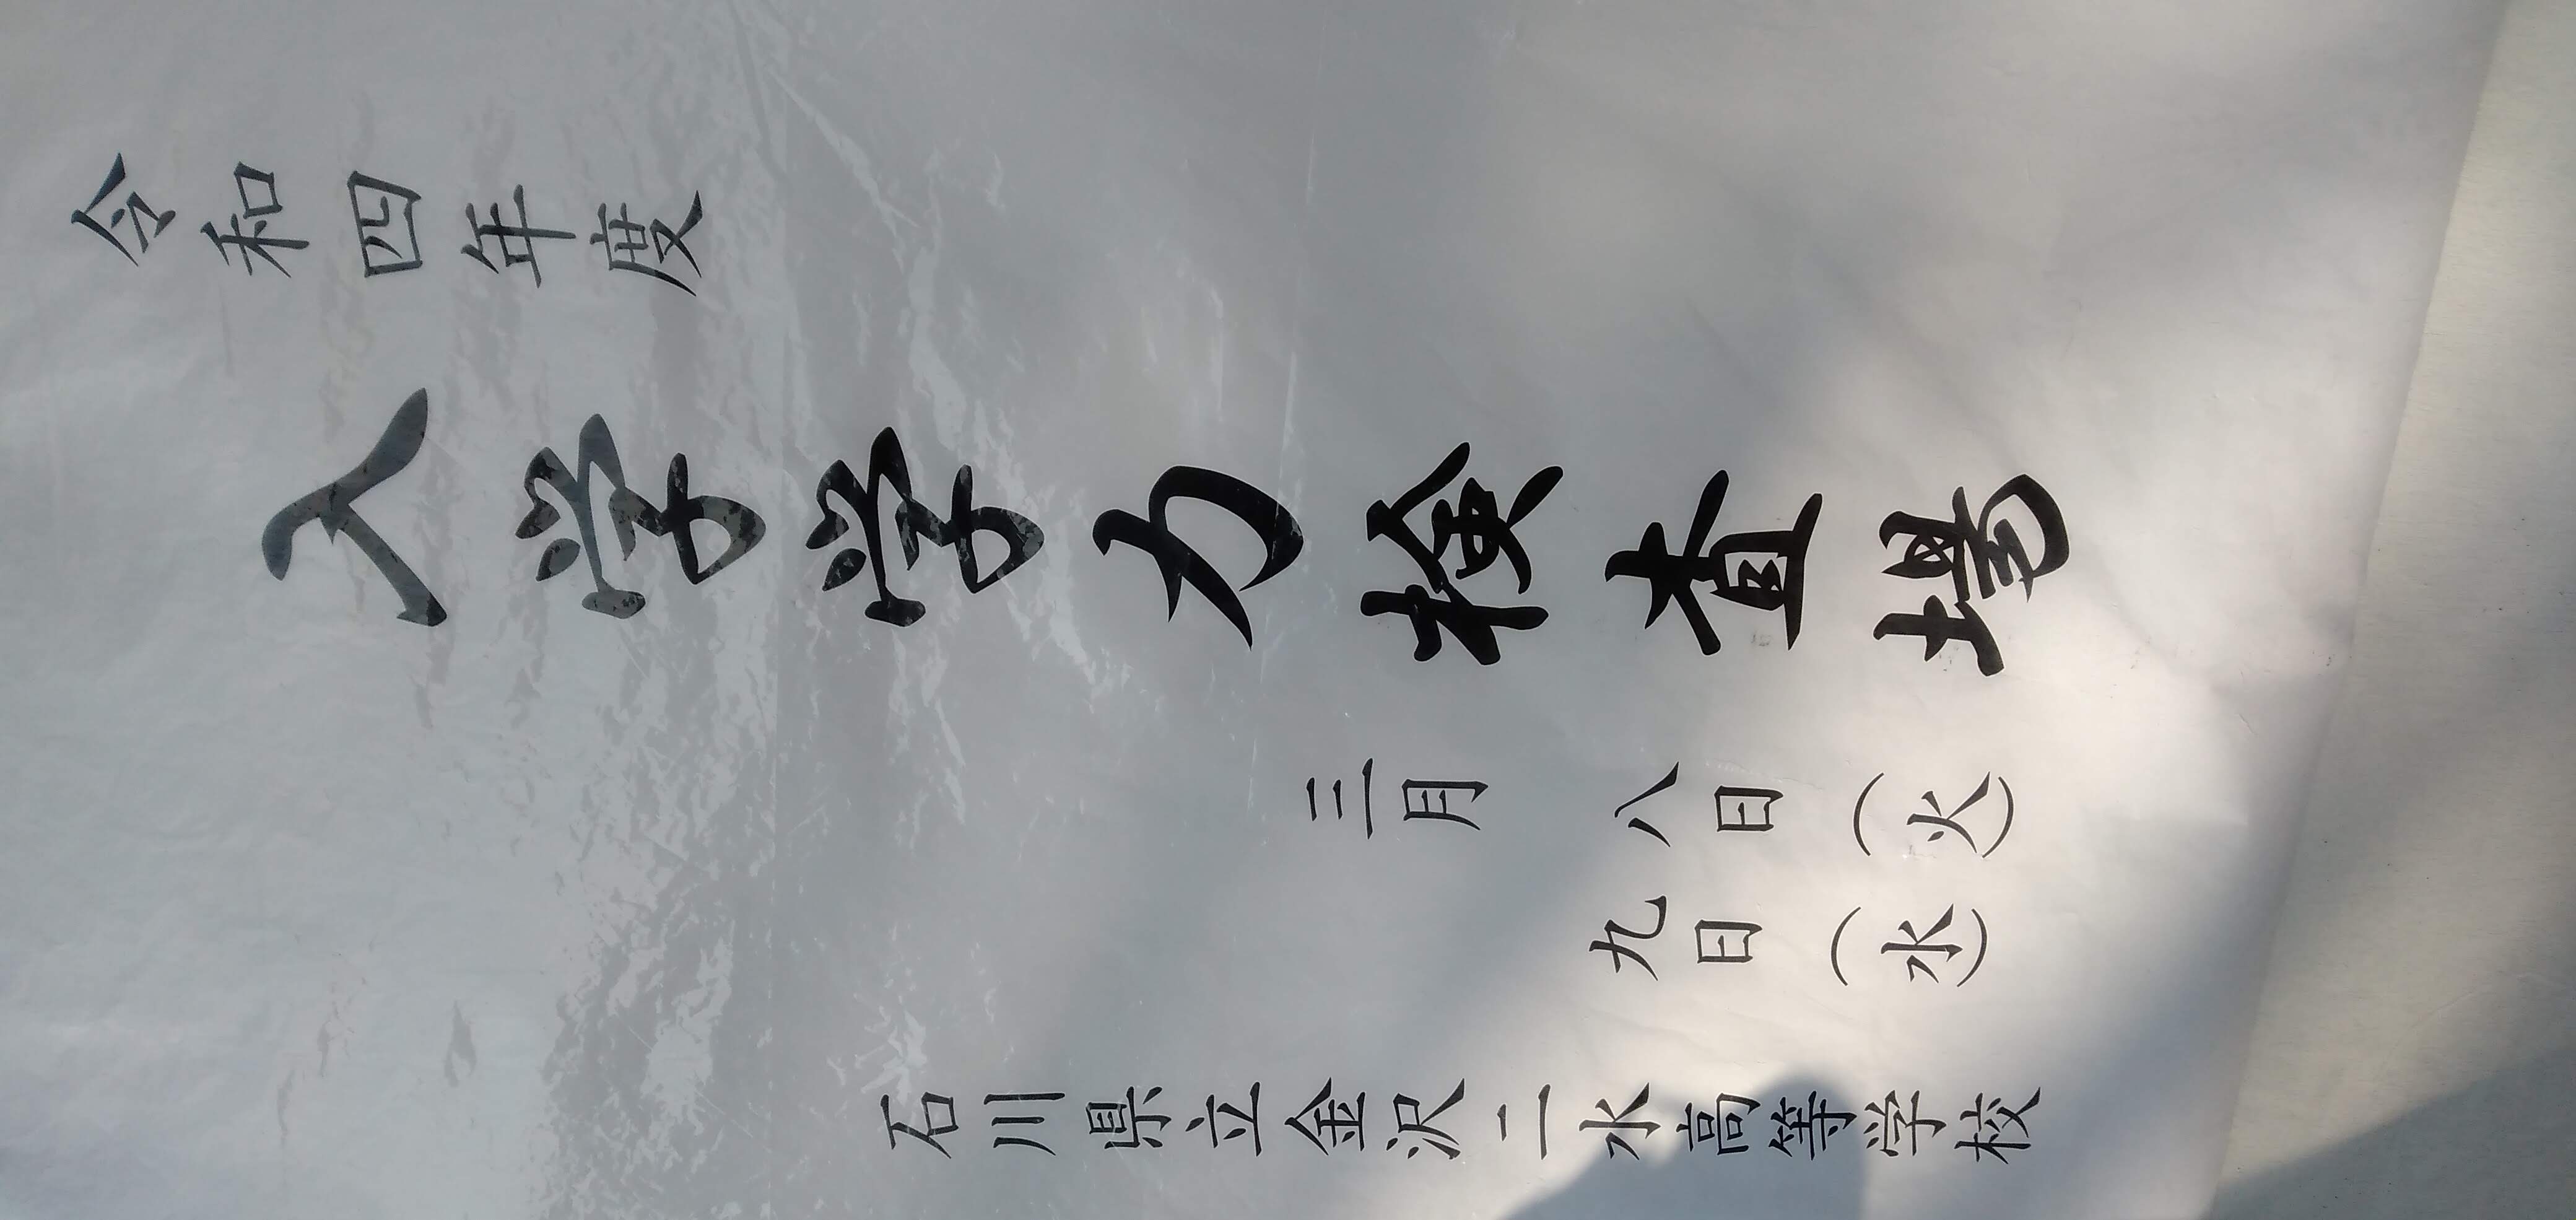 令和四年度
入学学力検査場
三月 八日（火）
九日（水）
石川県立金沢二水高等学校